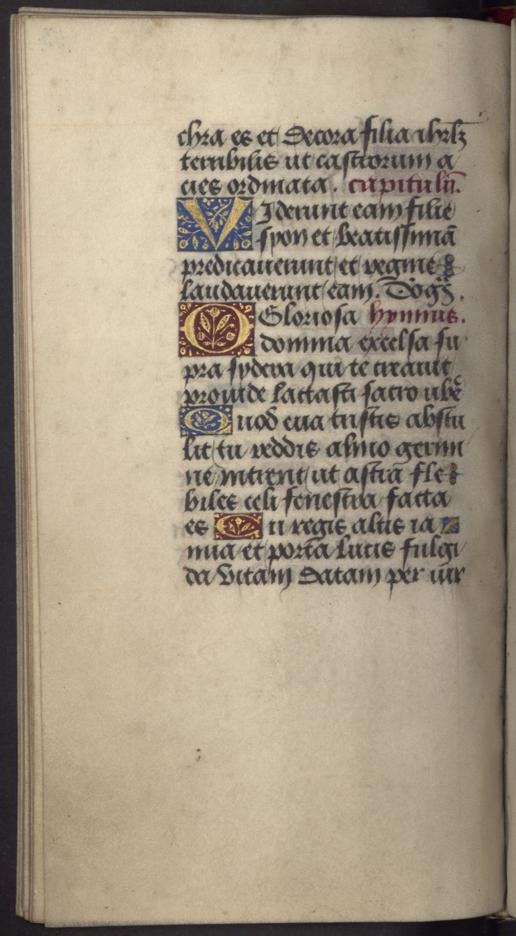 chra es et decora filia ihrlꝫ
terribilis ut castrorum a
cies ordinata. capitulū.
Viderunt eam filie
syon et beatissimā
predicauerunt et regine
laudauerunt eam, Dōgꝫ.
O Gloriosa hymnus.
domina excelsa su
pra sydera qui te creauit
prouide lactasti sacro ube
Quod eua tristis abstu
lit tu reddis almo germi
ne intrent ut astra fle
biles celi fenestra facta
es Tu regis altis ia
nua et porta lucis fulgi
da vitam datam per uir